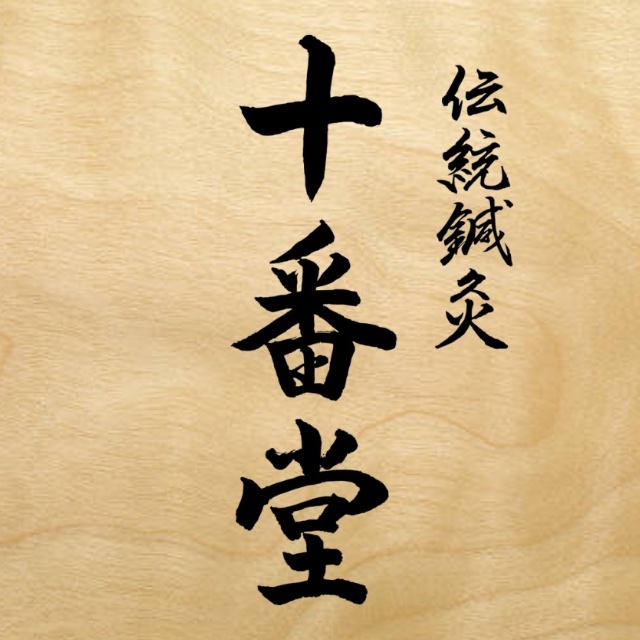 伝統鍼灸
十番堂